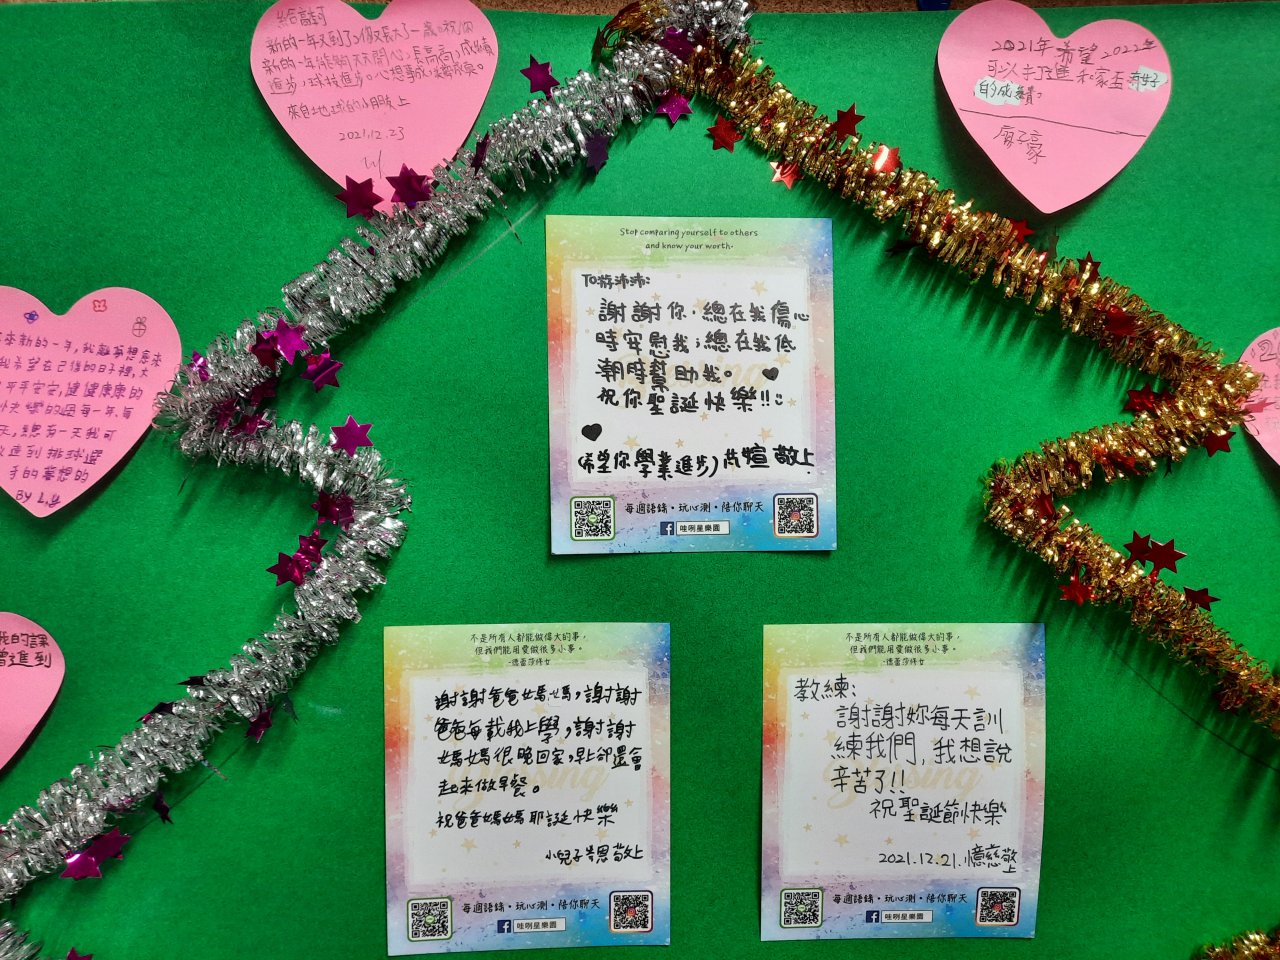 新的一年又到了,你又長大了一歲。祝你
新的一年能夠天天開心,長高高,成績
進步,球技進步。心想事成
來自地球的小朋友上
2021.12.23
2021年希望2022年
可以
的成績。
Stop comparing yourself to others
and know your worth.
TO游沛沛:
謝謝你,總在我傷心
時安慰我;總在我低
潮時幫助我。♥
祝你聖誕快樂!!
(希望你學業進步) 煊 敬上
每週語錄・玩心測・陪你聊天
哇咧星樂園
來新的一年,我
我希望在已後的日子裡,大
平平安安,健健康康的
快樂的過每一年、每
天,總有一天我可
以進到排球選
手的夢想的
By L.y
我的課
進到
不是所有人都能做偉大的事,
但我們能用愛做很多小事。
-德蕾莎修女
謝謝爸爸媽媽,謝謝
爸爸每載我上學,謝謝
媽媽很晚回家,早上卻還會
起來做早餐。
祝爸爸媽媽耶誕快樂
小兒子 恩 敬上
每週語錄・玩心測・陪你聊天
哇咧星樂園
不是所有人都能做偉大的事,
但我們能用愛做很多小事。
-德蕾莎修女
教練:
謝謝妳每天訓
練我們,我想說
辛苦了!!
祝聖誕節快樂
2021.12.21.憶慈敬上
每週語錄・玩心測・陪你聊天
哇咧星樂園